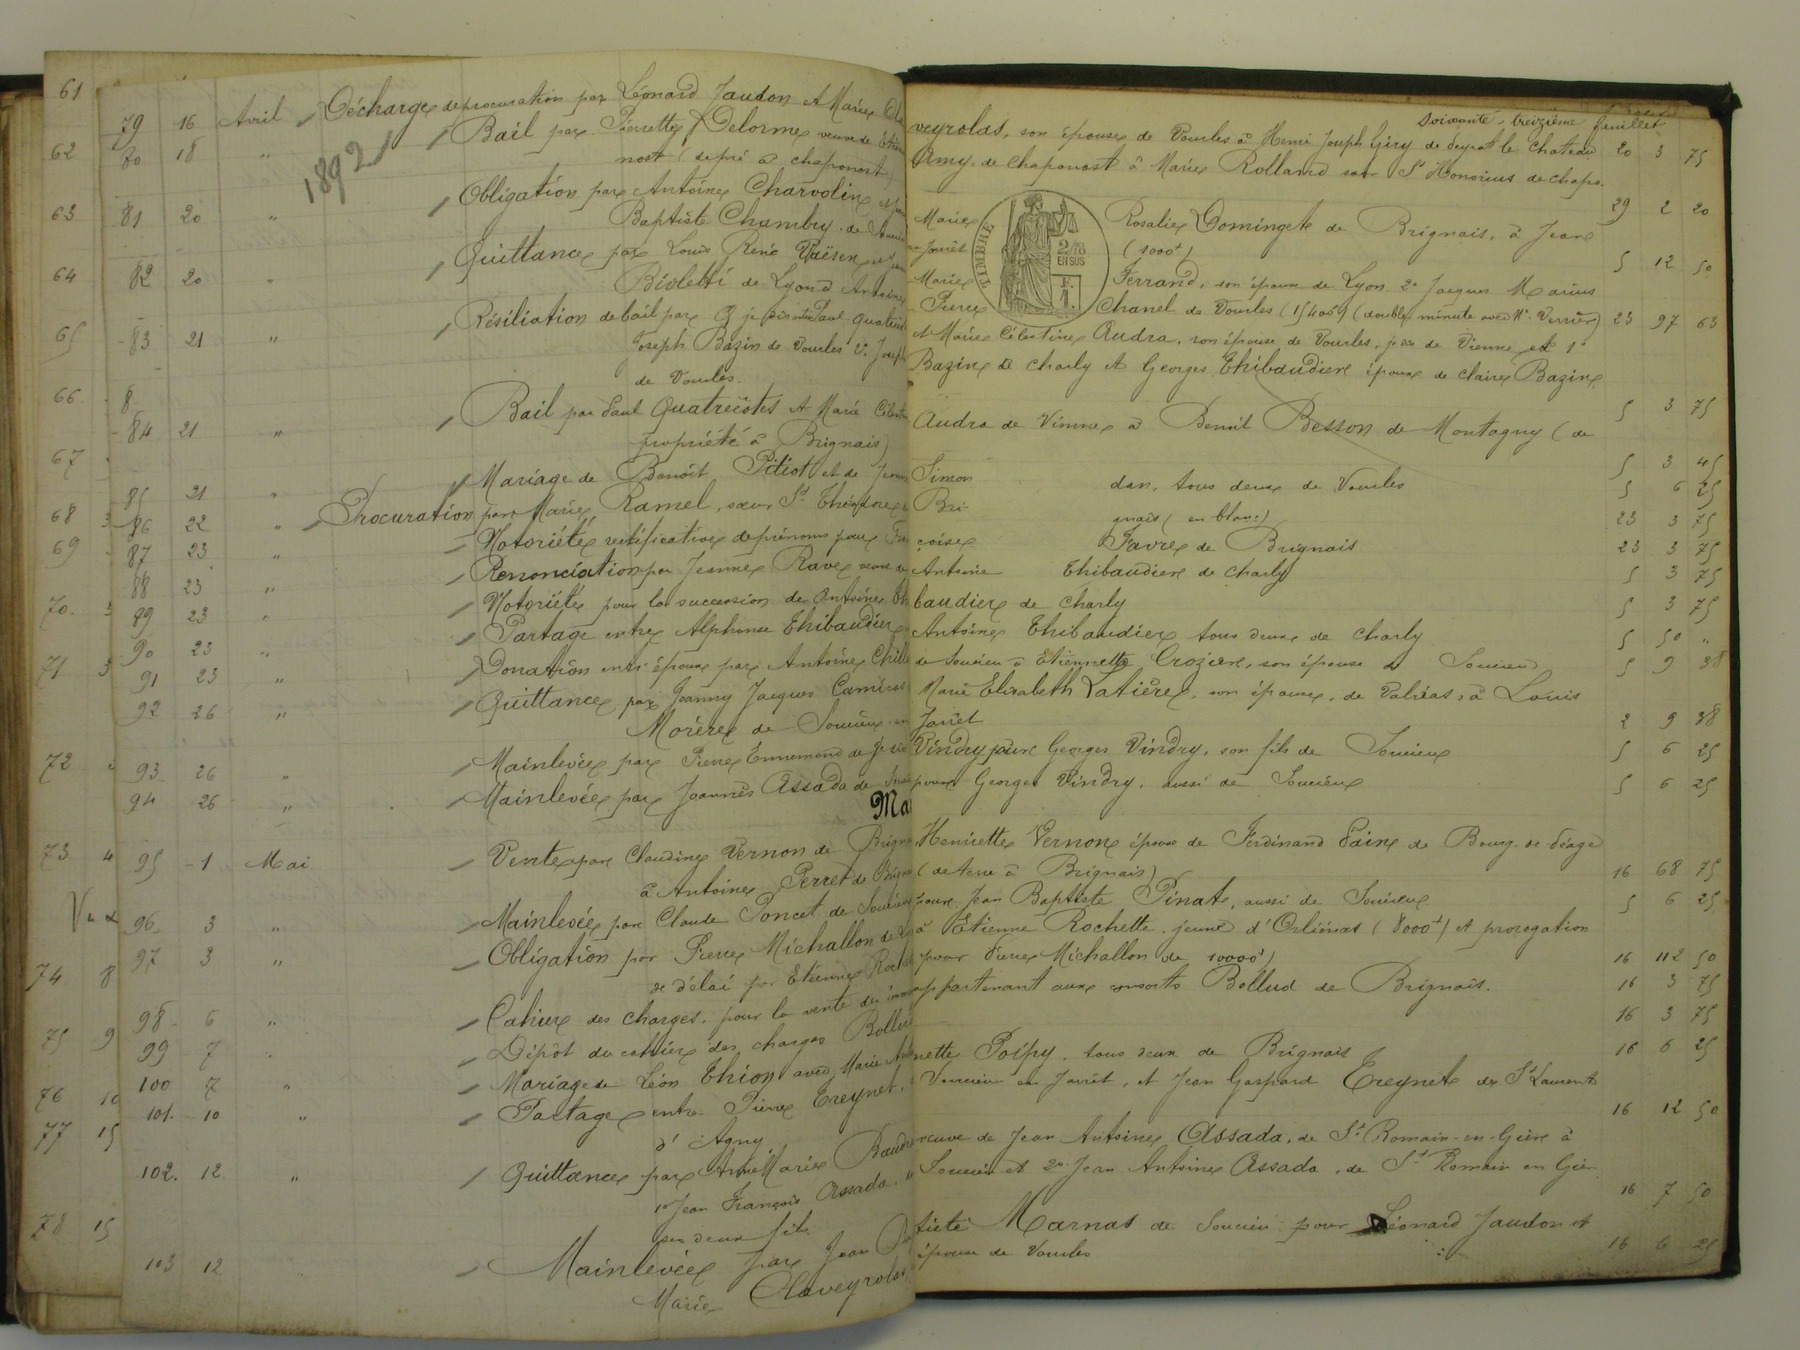 Soixante-treizième feuillet
1892
61
62
63
64
65
66
67
68 3
69
70. 3
71 3
72
73 4
Vu
74 8
75 9
76 10
77 15
78 15
79 16 Avril Décharge de procuration par Léonard Jaudon et Marie Cla veyrolas, son épouse de Vourles à Henri Joseph Giry de le Chateau 20 3 75
80 18 " Bail par Pierrette Delorme veuve de Amy, de Chaponost à Marie Rolland sœur St Honorius de Chapo-
nost ( à chaponost) 29 2 20
81 20 " Obligation par Antoine Charvolin Marie Rosalie Domingete de Brignais, à Jean
Baptiste Chambry. de Jarrêt (1000f) 5 12 50
82 20 " Quittance par Louis René Marie Ferrand, son épouse de Lyon 2° Jacques Marius
Violetti de Lyon à Antoine Pierre Chanel de Vourles (15400f) (double minute avec Me. Verrier) 23 97 63
83 21 " Résiliation de bail par Paul et Marie Célestine Audra, son épouse de Vourles, de Vienne et 1°
Joseph Bazin de Vourles 2°. Joseph Bazin de Charly et Georges Thibaudier époux de Claire Bazin
de Vourles. 5 3 75
8.
84 21 " Bail par Paul et Marie Audra de Vienne à Benoît Besson de Montagny (de
propriété à Brignais) 5 3 45
85 21 " Mariage de Benoît Pitiot et de Simon dan, tous deux de Vourles 5 6 25
86 22 " Procuration par Marie Ramel, sœur St. Bri gnais (en blanc) 23 3 75
87 23 " Notoriété rectificative de prénoms pour Fran çoise Favre de Brignais 23 3 75
88 23 " Renonciation par Jeanne Rave veuve de Antoine Thibaudier de Charly 5 3 75
89 23 " Notoriété pour la succession de Antoine Thi baudier de Charly 5 3 75
90 23 " Partage entre Alphonse Thibaudier Antoine Thibaudier tous deux de Charly 5 50 "
91 23 " Donation entre époux par Antoine de Soucieu à Etiennette Crozier, son épouse de Soucieu 5 9 38
92 26 " Quittance par Joanny Jacques Marie Elisabeth Latière, son épouse, de Valréas, à Louis
Morère de Soucieu en Jarrêt 2 9 38
93 26 " Mainlevée par Pierre Ennemond Vindry pour Georges Vindry, son fils de Soucieu 5 6 25
94 26 " Mainlevée par Joannès Assada de pour Georges Vindry, aussi de Soucieu 5 6 25
Mai
95 1 Mai Vente par Claudine Vernon de Brignais Henriette Vernon épouse de Ferdinand Faine de Bourg-de-Péage
à Antoine Perret de Brignais (de terre à Brignais) 16 68 75
96 3 " Mainlevée par Claude Poncet de Soucieu pour Jean Baptiste Pinat, aussi de Soucieu 5 6 25
97 3 " Obligation par Pierre Michallon de à Etienne Rochette jeune d'Orliénas (8000f) et prorogation
de délai par Etienne Rochette pour Pierre Michallon de 10000f) 16 112 50
98 6 " Cahier des charges. pour la vente des appartenant aux consorts Bollud de Brignais. 16 3 75
99 7 " Dépôt du cahier des charges Bollud 16 3 75
100 7 " Mariage de Léon Thion avec Marie nette Poipy, tous deux de Brignais 16 6 25
101. 10 " Partage entre Pierre Treynet. Soucieu en Jarrêt, et Jean Gaspard Treynet de St Laurent
d'Agny 16 12 50
102. 12 " Quittance par Anne Marie Baudr veuve de Jean Antoine Assada, de St. Romain-en-Gier à
1° Jean François Assada, de Soucieu et 2° Jean Antoine Assada, de St Romain en Gier
ses deux fils 16 7 50
103 12 Mainlevée par Jean Bap tiste Marnas de Soucieu pour Léonard Jaudon et
Marie Claveyrolas, épouse de Vourles 16 6 25
TIMBRE
2/10
EN SUS
F.
1.